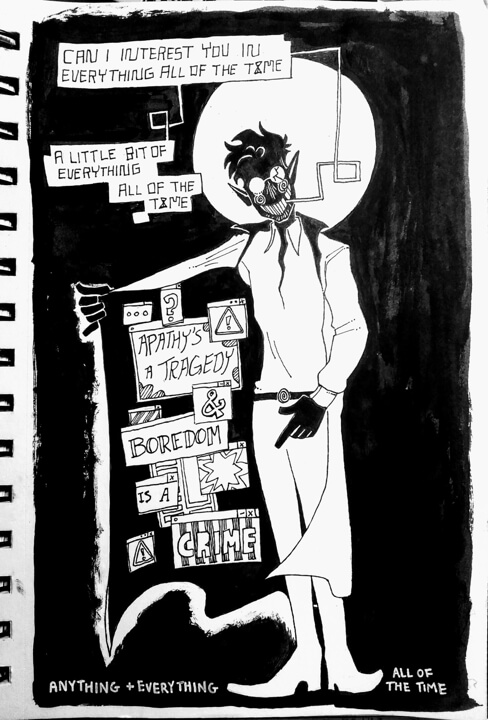 CAN I INTEREST YOU IN
EVERYTHING ALL OF THE TIME
A LITTLE BIT OF
EVERYTHING
ALL OF THE
TIME
...
?
!
APATHY'S
A TRAGEDY
&
BOREDOM
IS A
!
CRIME
ANYTHING + EVERYTHING
ALL OF
THE TIME